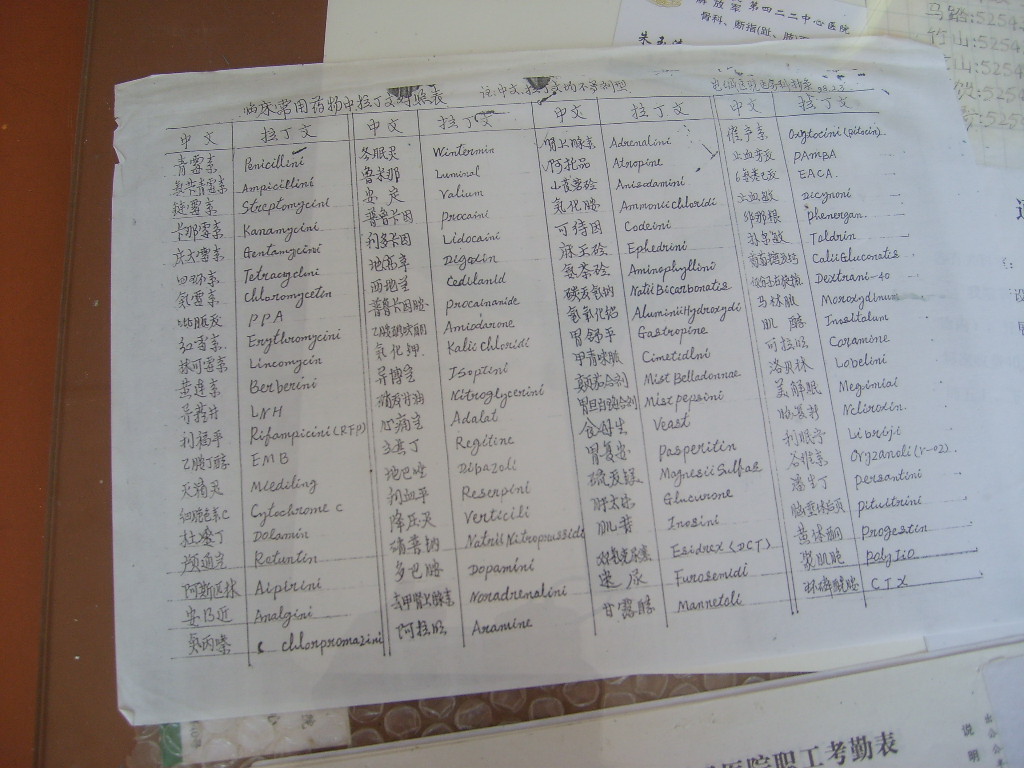 解放军第四二二中心医院
骨科、断指(趾、肢)
马
竹山:5254
:5254
:5254
:525
临床常用药物中拉丁文对照表
中文 拉丁文 中文 拉丁文 中文 拉丁文 中文 拉丁文
青霉素 Penicillini 冬眠灵 Wintermin 肾上腺素 Adrenalini 催产素 Oxytocini (Pitocin)
氨苄青霉素 Ampicillini 鲁米那 Luminal 阿托品 Atropine 止血芳酸 PAMBA
链霉素 Streptomycini 安定 Valium 山莨菪硷 Anisodamini EACA
卡那霉素 Kanamycini 普鲁卡因 Procaini 氯化胺 Ammonii chloridi 止血敏 Dicynoni
庆大霉素 Gentamycini 利多卡因 Lidocaini 可待因 Codeini 非那根 Phenergan
四环素 Tetracyclini 地高辛 Digoxin 麻王硷 Ephedrini 扑尔敏
氯霉素 Chloromycetin 西地兰 Cedilanid 氨茶硷 Aminophyllini Calcii Gluconatis
吡哌酸 PPA 普鲁卡因胺 Procainanide 碳酸氢钠 Natii Bicarbonatis Dextrani-40
红霉素 Erythromycini 乙胺碘呋酮 Amiodarone 氢氧化铝 Aluminii Hydroxydi 马林胍 Moroxydinum
林可霉素 Lincomycin 氯化钾 Kalii chloridi 胃舒平 Gastropine 肌醇 Inositalum
黄连素 Berberini 异搏定 Isoptini 甲青咪胍 Cimetidlni 可拉明 Coramine
异菸肼 LNH 硝酸甘油 Nitroglycerini Mist Belladonnae 洛贝林 Lobelini
利福平 Rifampicini (RFP) 心痛定 Adalat 胃旦白酶合剂 Mist pepsini 美解眠 Megimial
乙胺丁醇 EMB 立其丁 Regitine 食母生 Yeast Neliroxin
灭滴灵 Miediling 地巴唑 Dipazoli 胃复安 Pasperitin 利眠宁 Libriji
细胞色素C Cytochrome c 利血平 Reserpini 硫酸镁 Magnesii Sulfas 谷维素 Oryzanoli (r-02)
杜冷丁 Dolamin 降压灵 Verticili 肝太乐 Glucurone 潘生丁 persantini
颅通定 Rotuntin 硝普钠 Natrii Nitroprussidi 肌苷 Inosini 脑垂体后叶 pituitrini
阿斯匹林 Aipirini 多巴胺 Dopamini Esidrex (DCT) 黄体酮 Progestin
安乃近 Analgini 去甲肾上腺素 Noradrenalini 速尿 Furosemidi 聚肌胞 Poly I:O
氯丙嗪 chlorpromazini 阿拉明 Aramine 甘露醇 Mannetoli 环磷酰胺 CTX
医院职工考勤表
说明